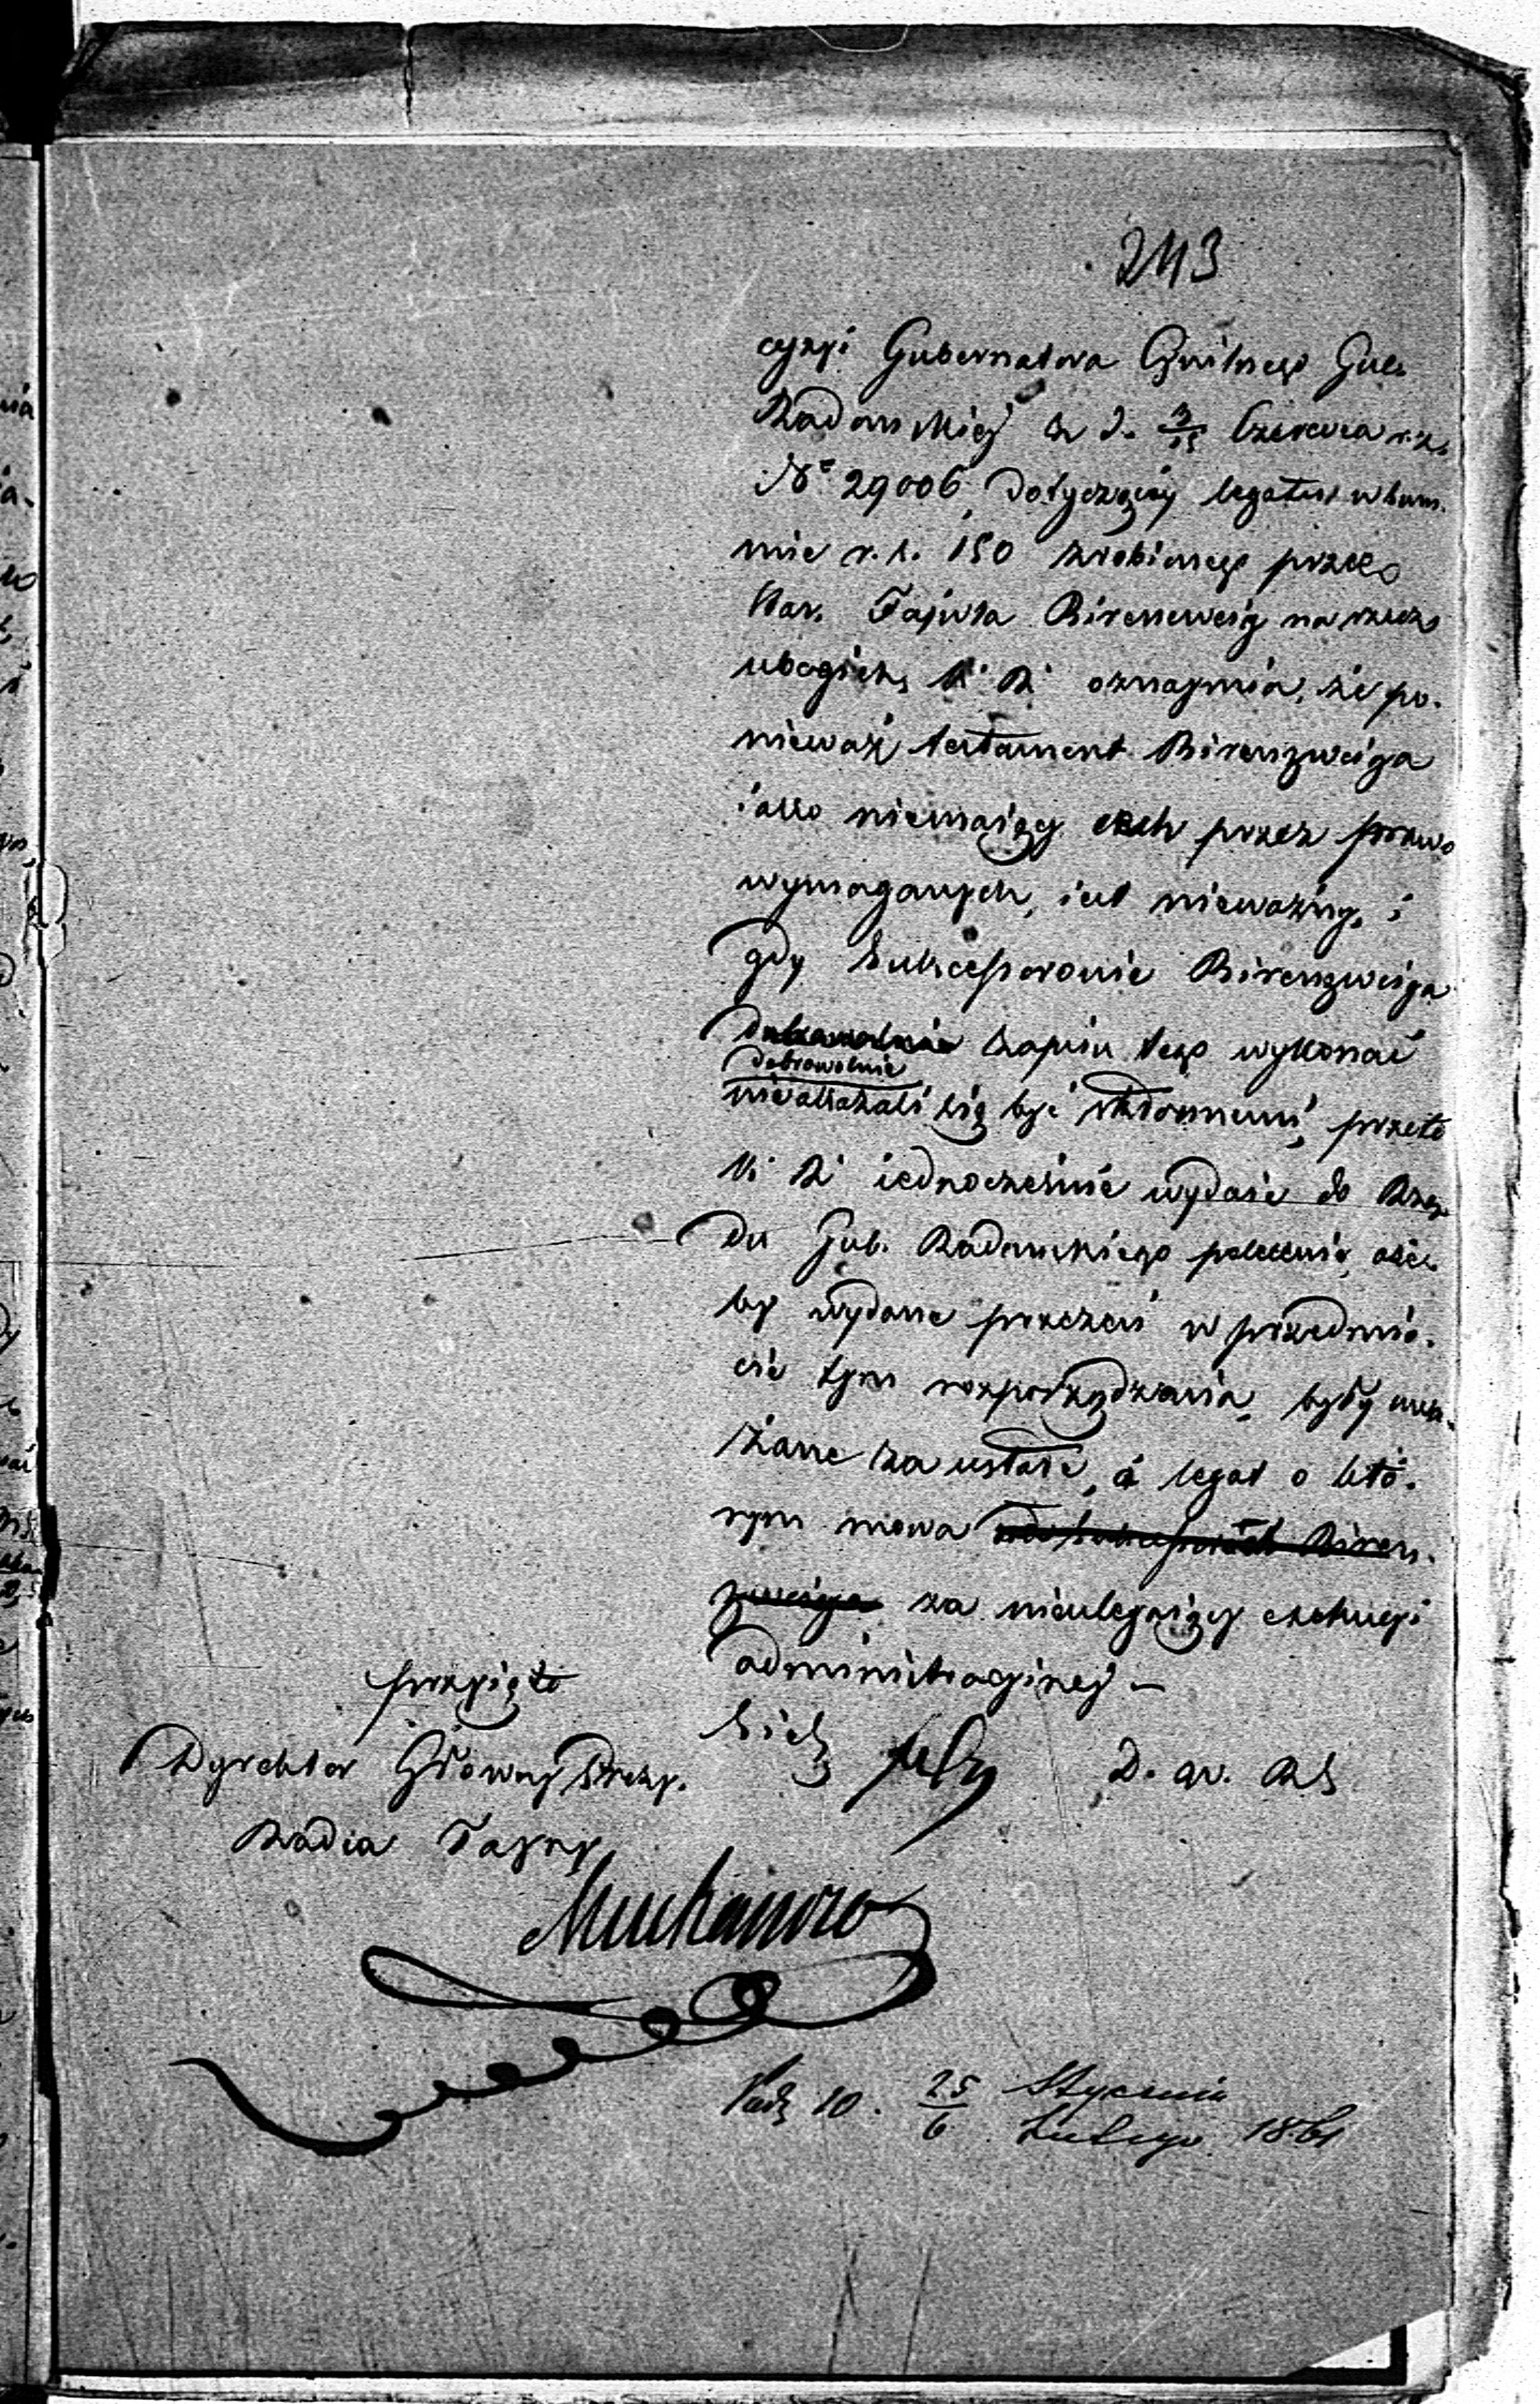 243
cyzyi Gubernatora Cywilnego Gub.
Radomskiej z d. 3/15 Czerwca r. z.
№ 29006, dotyczącej legatu w sum-
mie r. s. 150 zrobionego przez
Star. Fajwla Birencweig na rzecz
ubogich, K. R. oznajmia, że po-
nieważ testament Birenzweiga
iako niemaiący cech przez prawo
wymaganych, iest nieważny, i
gdy Sukcessorowie Birenzweiga
dobrowolnie zapisu tego wykonać
dobrowolnie
nieokazali się być skłonnemi, przeto
K. R. iednocześnie wydaie do Rzą-
du Gub. Radomskiego polecenie, aże-
by wydane przezeń w przedmio-
cie tym rozporządzenia, były uwa-
żane za ustałe, a legat o któ-
rym mowa Biren-
zweiga za nieulegaiący exekucyi
administracyinej —
D. W.
przyięto
Dyrektor Główny Prezy.
Radca Tayny
Muchanow
25/6 Stycznia
Lutego 1861